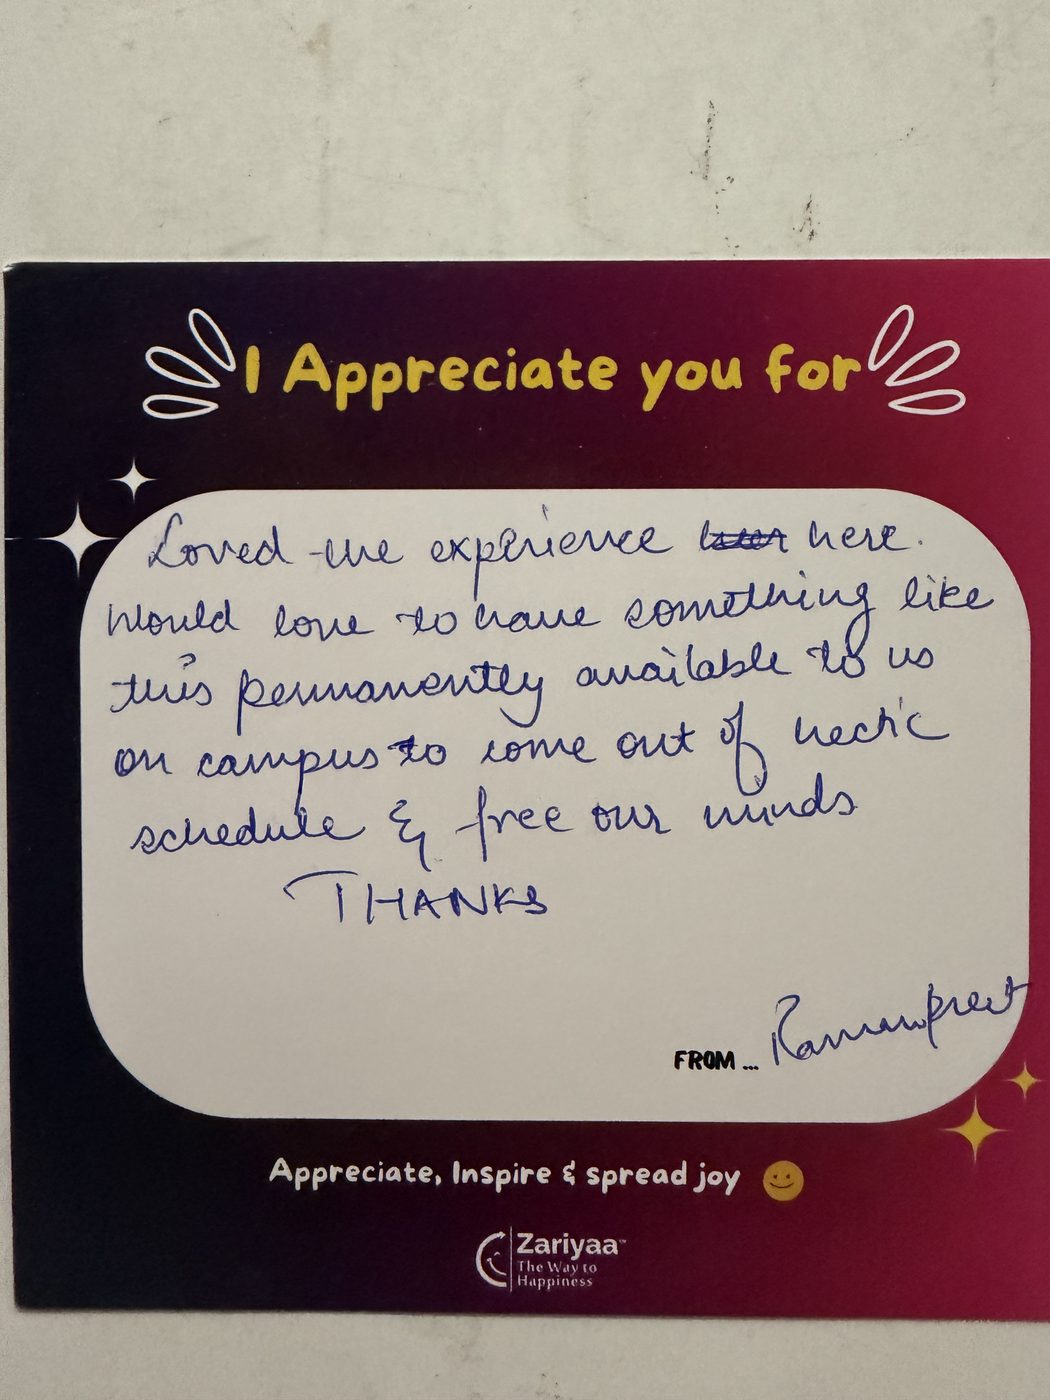 I Appreciate you for
Loved the experience here.
Would love to have something like
this permanantly available to us
on campus to come out of hectic
schedule & free our minds
THANKS
FROM... Ramanpreet
Appreciate, Inspire & spread joy
Zariyaa™
The Way to
Happiness